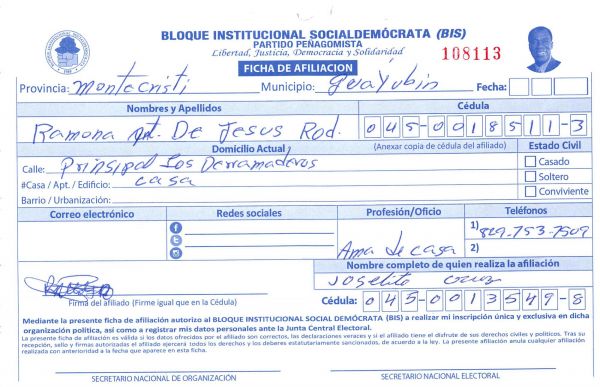 BLOQUE INSTITUCIONAL SOCIALDEMÓCRATA (BIS)
PARTIDO PEÑAGOMISTA
Libertad, Justicia, Democracia y Solidaridad
108113
FICHA DE AFILIACION
Provincia: Montecristi Municipio: Guayubin Fecha:
Nombres y Apellidos Cédula
Ramona De Jesus Rod. 045-0018511-3
Domicilio Actual (Anexar copia de cédula del afiliado) Estado Civil
Calle: Principal Los Derramaderos Casado
#Casa / Apt. / Edificio: casa Soltero
Barrio / Urbanización: Conviviente
Correo electrónico Redes sociales Profesión/Oficio Teléfonos
1) 829-753-7509
Ama de casa 2)
Nombre completo de quien realiza la afiliación
Joselito Cruz
Firma del afiliado (Firme igual que en la Cédula) Cédula: 045-0013549-8
Mediante la presente ficha de afiliación autorizo al BLOQUE INSTITUCIONAL SOCIAL DEMÓCRATA (BIS) a realizar mi inscripción única y exclusiva en dicha
organización política, así como a registrar mis datos personales ante la Junta Central Electoral.
La presente ficha de afiliación es válida si los datos ofrecidos por el afiliado son correctos, las declaraciones veraces y si el afiliado tiene el disfrute de sus derechos civiles y políticos. Tras su
recepción, sello y firmas autorizadas el afiliado ejercerá todos los derechos y los deberes estatutariamente sancionados, de acuerdo a la ley. La presente afiliación anula cualquier afiliación
realizada con anterioridad a la fecha que aparece en esta ficha.
SECRETARIO NACIONAL DE ORGANIZACIÓN SECRETARIO NACIONAL ELECTORAL